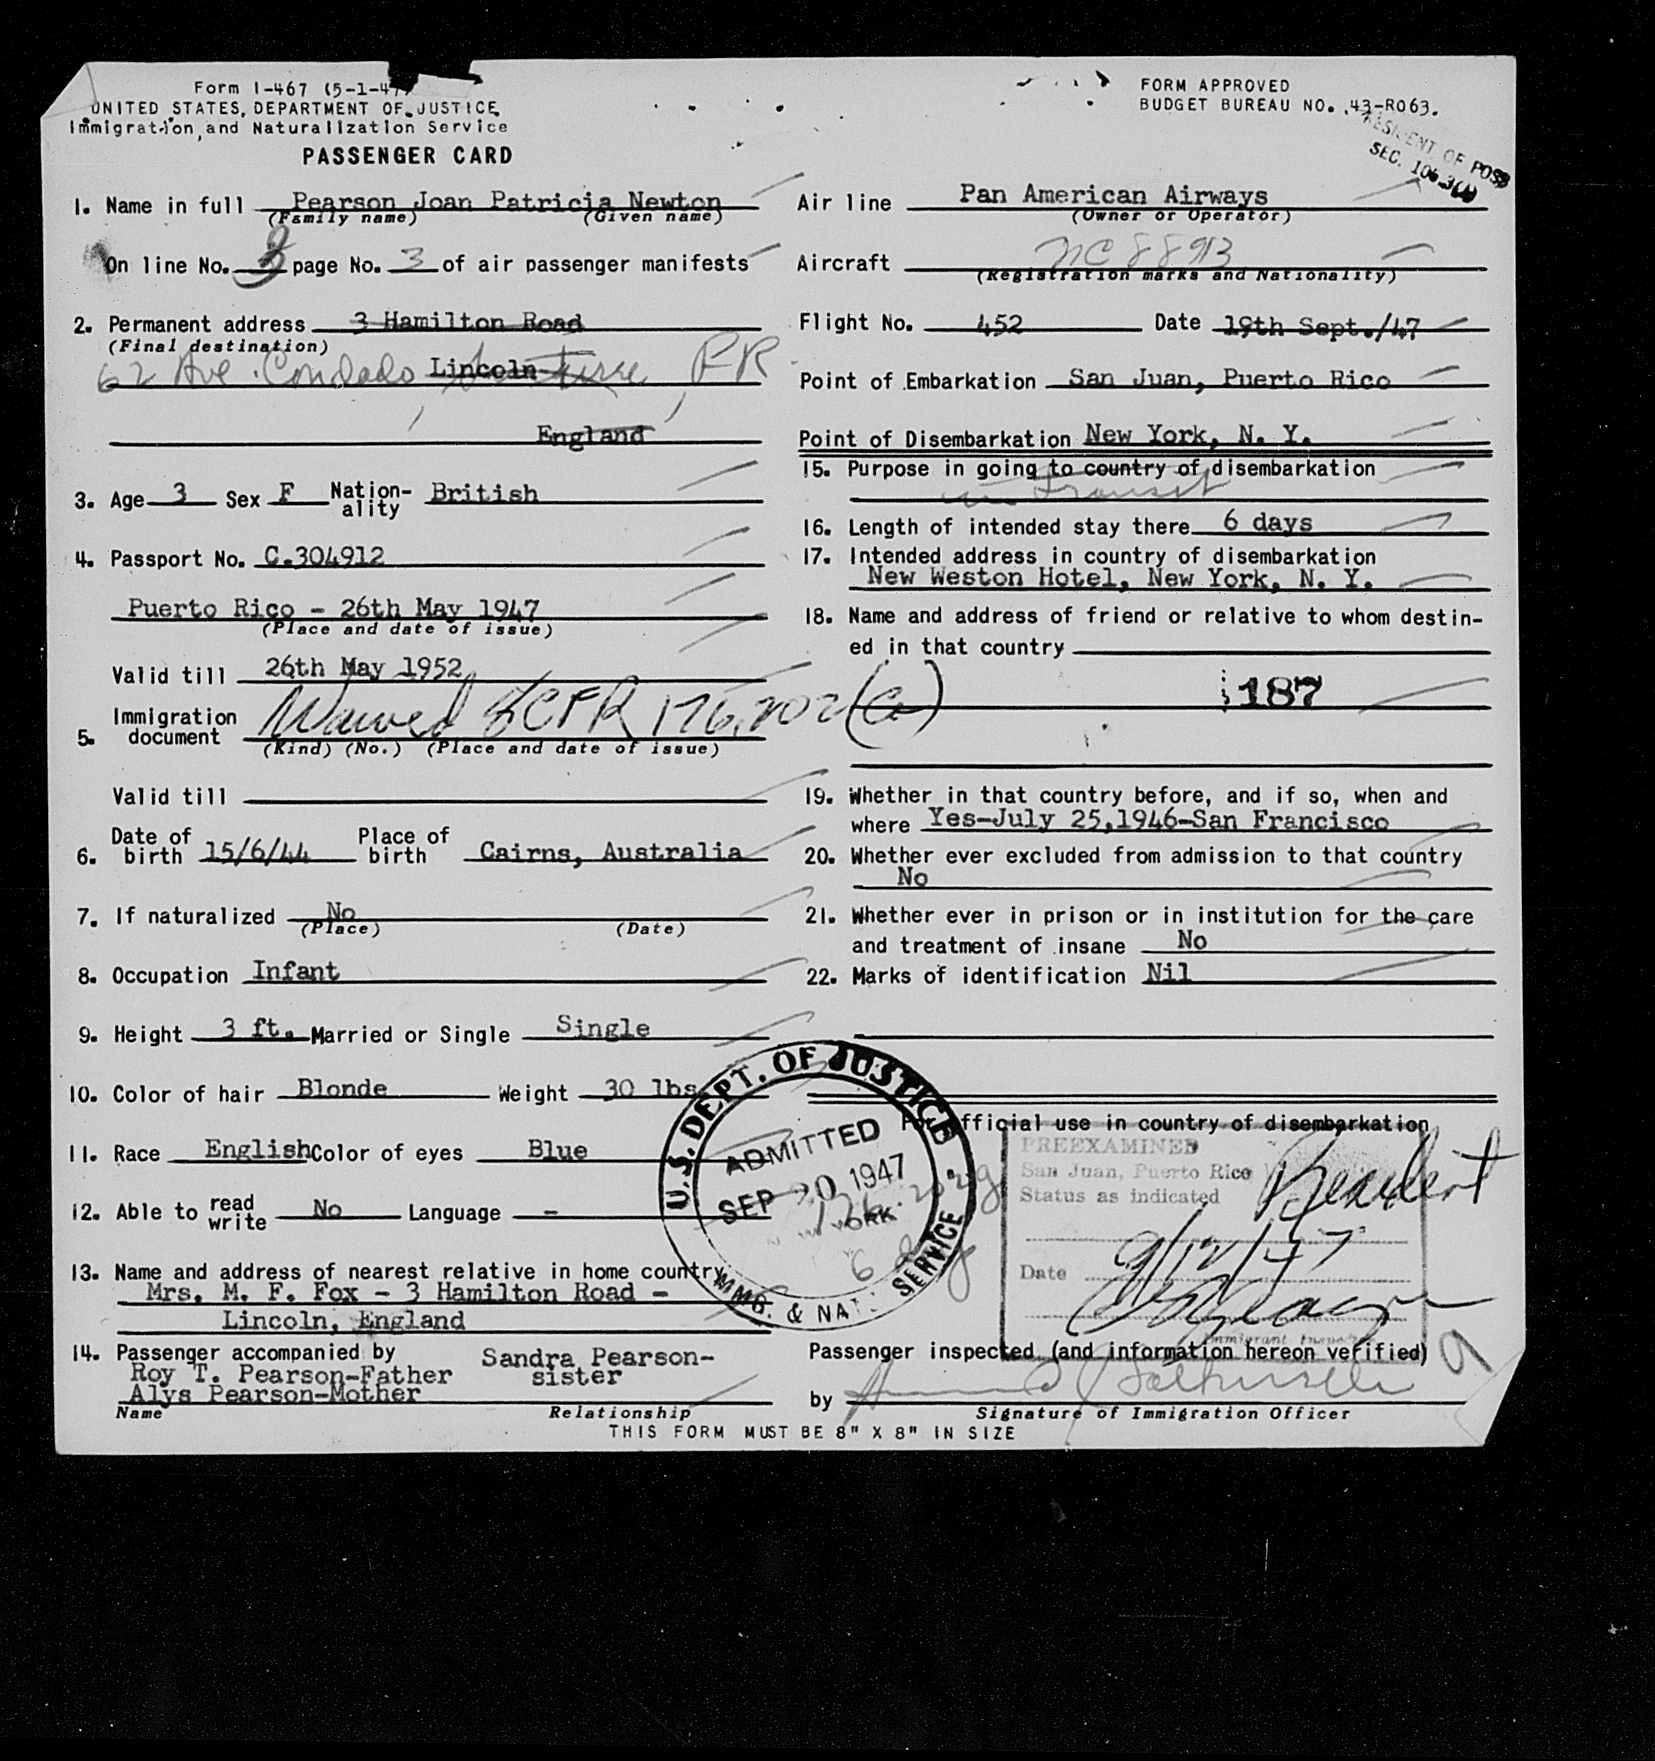 Form I-467 (5-1-47)
UNITED STATES, DEPARTMENT OF JUSTICE
Immigration and Naturalization Service
PASSENGER CARD
FORM APPROVED
BUDGET BUREAU NO. 43-R063.
SEC.
1. Name in full Pearson Joan Patricia Newton
(Family name) (Given name)
On line No. 3 page No. 3 of air passenger manifests
2. Permanent address 3 Hamilton Road
(Final destination)
62 Ave. Condado Lincoln PR
England
3. Age 3 Sex F Nation-ality British
4. Passport No. C.304912
Puerto Rico - 26th May 1947
(Place and date of issue)
Valid till 26th May 1952
5. Immigration document Waived 8CFR 176.202(a)
(Kind) (No.) (Place and date of issue)
Valid till
6. Date of birth 15/6/44 Place of birth Cairns, Australia
7. If naturalized No
(Place) (Date)
8. Occupation Infant
9. Height 3 ft. Married or Single Single
10. Color of hair Blonde Weight 30 lbs
11. Race English Color of eyes Blue
12. Able to read write No Language -
13. Name and address of nearest relative in home country
Mrs. M. F. Fox - 3 Hamilton Road -
Lincoln, England
14. Passenger accompanied by
Roy T. Pearson-Father Sandra Pearson-sister
Alys Pearson-Mother
Name Relationship
Air line Pan American Airways
(Owner or Operator)
Aircraft NC 88913
(Registration marks and Nationality)
Flight No. 452 Date 19th Sept./47
Point of Embarkation San Juan, Puerto Rico
Point of Disembarkation New York, N. Y.
15. Purpose in going to country of disembarkation
in transit
16. Length of intended stay there 6 days
17. Intended address in country of disembarkation
New Weston Hotel, New York, N. Y.
18. Name and address of friend or relative to whom destin-
ed in that country
187
19. Whether in that country before, and if so, when and
where Yes-July 25,1946-San Francisco
20. Whether ever excluded from admission to that country
No
21. Whether ever in prison or in institution for the care
and treatment of insane No
22. Marks of identification Nil
For official use in country of disembarkation
U.S. DEPT. OF JUSTICE
ADMITTED
SEP 20 1947
IMMG. & NAT. SERVICE
PREEXAMINED
San Juan, Puerto Rico
Status as indicated Resident
Date 9/12/47
Passenger inspected (and information hereon verified)
by
Signature of Immigration Officer
THIS FORM MUST BE 8" X 8" IN SIZE